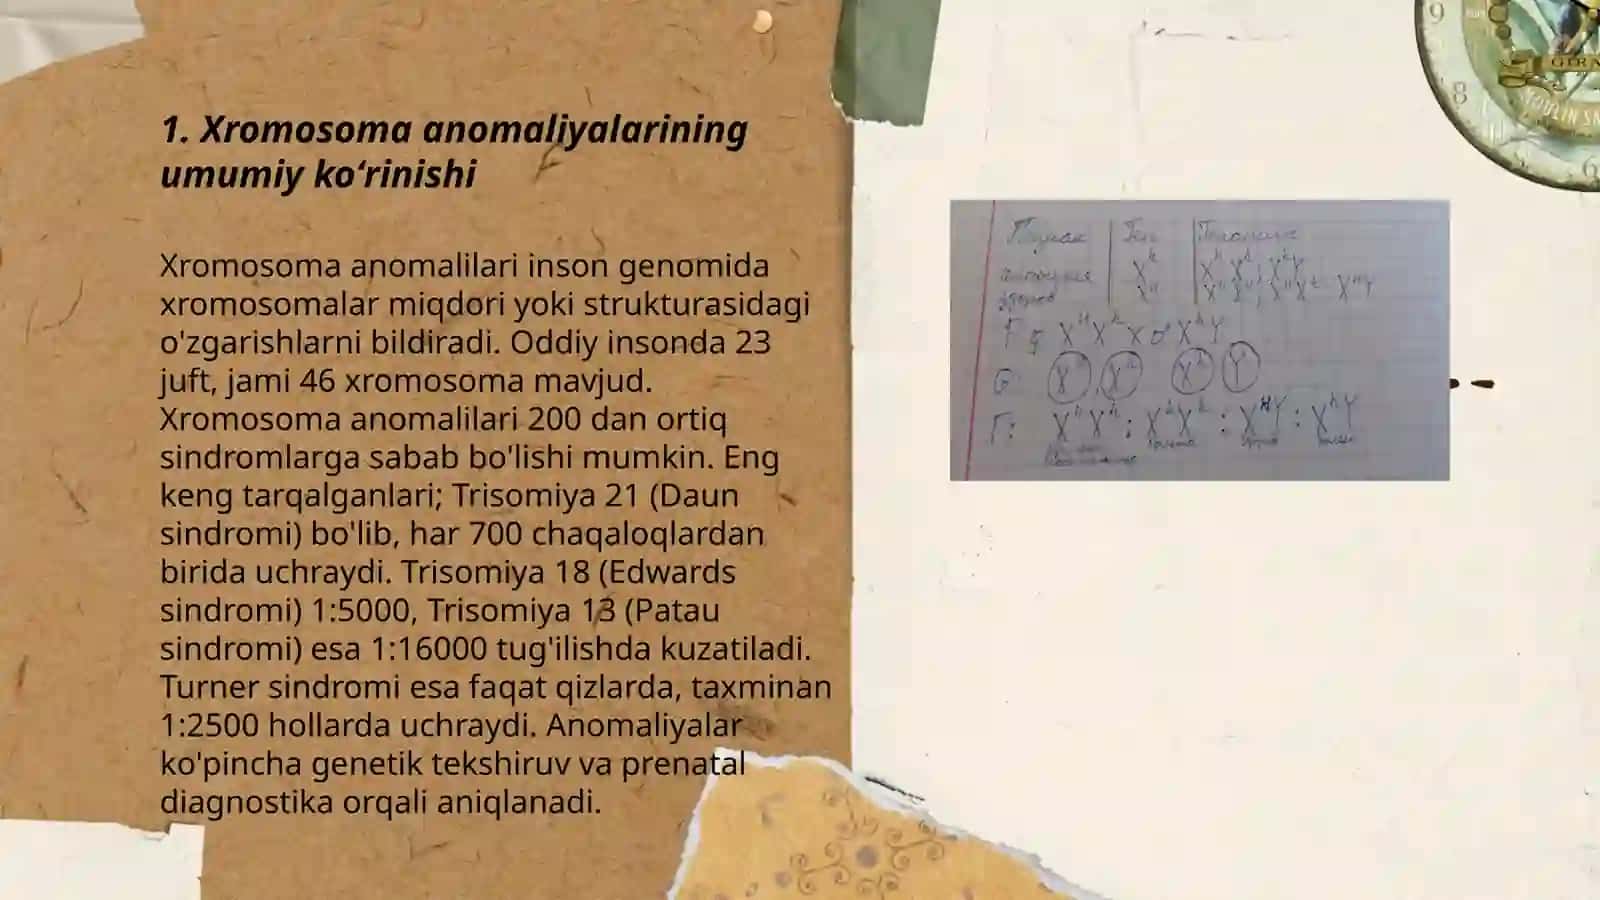 1. Xromosoma anomaliyalarining
umumiy ko‘rinishi
Xromosoma anomalilari inson genomida
xromosomalar miqdori yoki strukturasidagi
o'zgarishlarni bildiradi. Oddiy insonda 23
juft, jami 46 xromosoma mavjud.
Xromosoma anomalilari 200 dan ortiq
sindromlarga sabab bo'lishi mumkin. Eng
keng tarqalganlari; Trisomiya 21 (Daun
sindromi) bo'lib, har 700 chaqaloqlardan
birida uchraydi. Trisomiya 18 (Edwards
sindromi) 1:5000, Trisomiya 13 (Patau
sindromi) esa 1:16000 tug'ilishda kuzatiladi.
Turner sindromi esa faqat qizlarda, taxminan
1:2500 hollarda uchraydi. Anomaliyalar
ko'pincha genetik tekshiruv va prenatal
diagnostika orqali aniqlanadi.
9
8
6
Ген